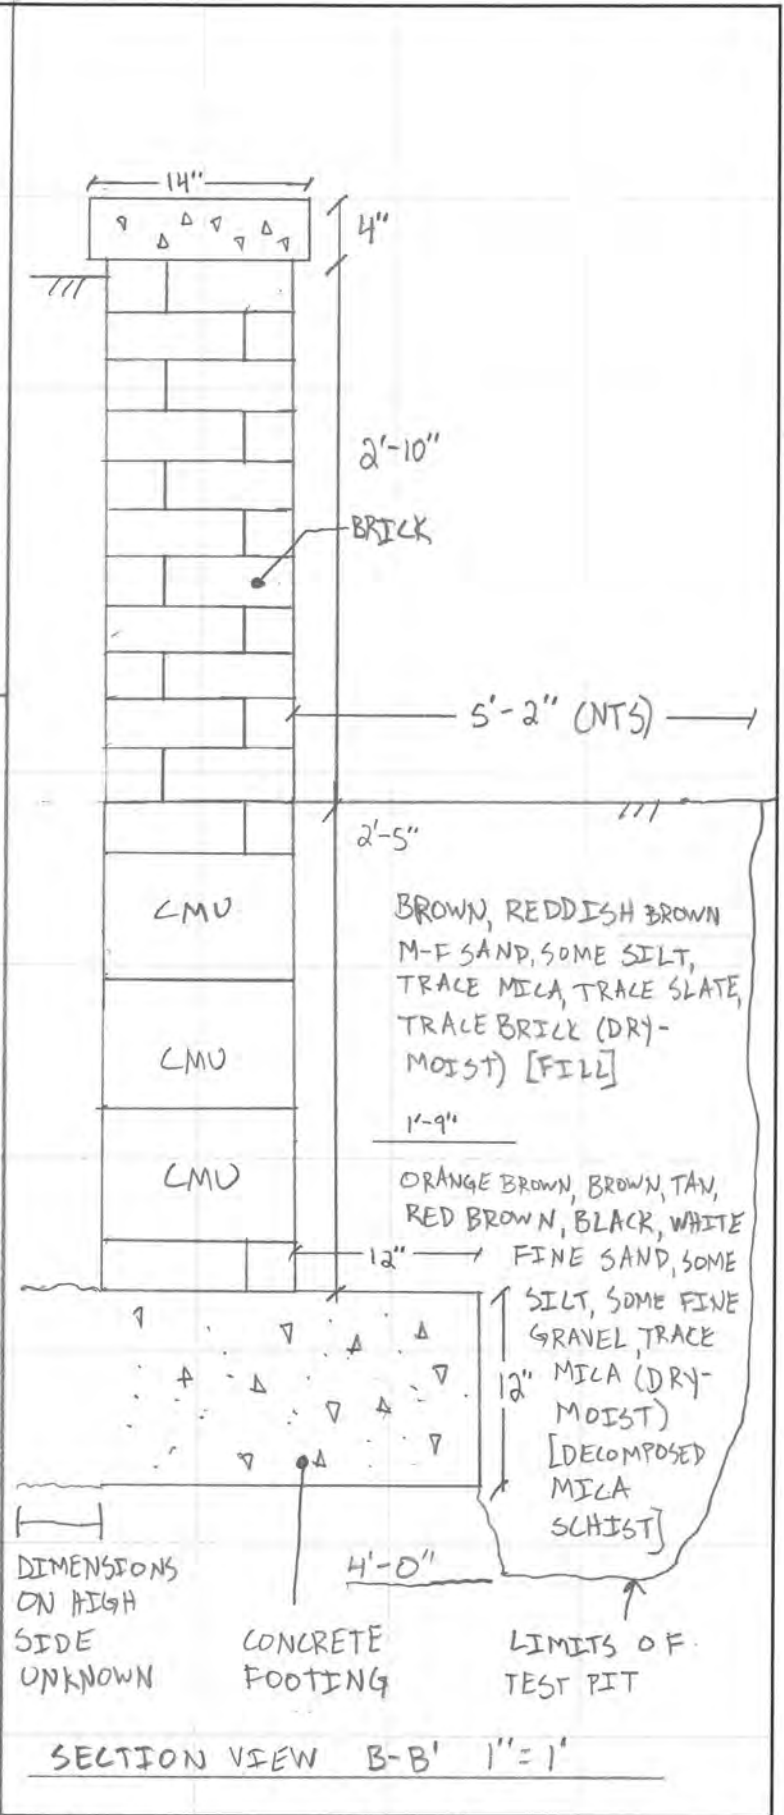 14"
4"
2'-10"
BRICK
5'-2" (NTS)
2'-5"
BROWN, REDDISH BROWN
M-F SAND, SOME SILT,
TRACE MICA, TRACE SLATE,
TRACE BRICK (DRY-
MOIST) [FILL]
CMU
CMU
CMU
1'-9"
ORANGE BROWN, BROWN, TAN,
RED BROWN, BLACK, WHITE
FINE SAND, SOME
SILT, SOME FINE
GRAVEL, TRACE
MICA (DRY-
MOIST)
[DECOMPOSED
MICA
SCHIST]
12"
12"
4'-0"
DIMENSIONS
ON HIGH
SIDE
UNKNOWN
CONCRETE
FOOTING
LIMITS OF
TEST PIT
SECTION VIEW B-B' 1"=1'